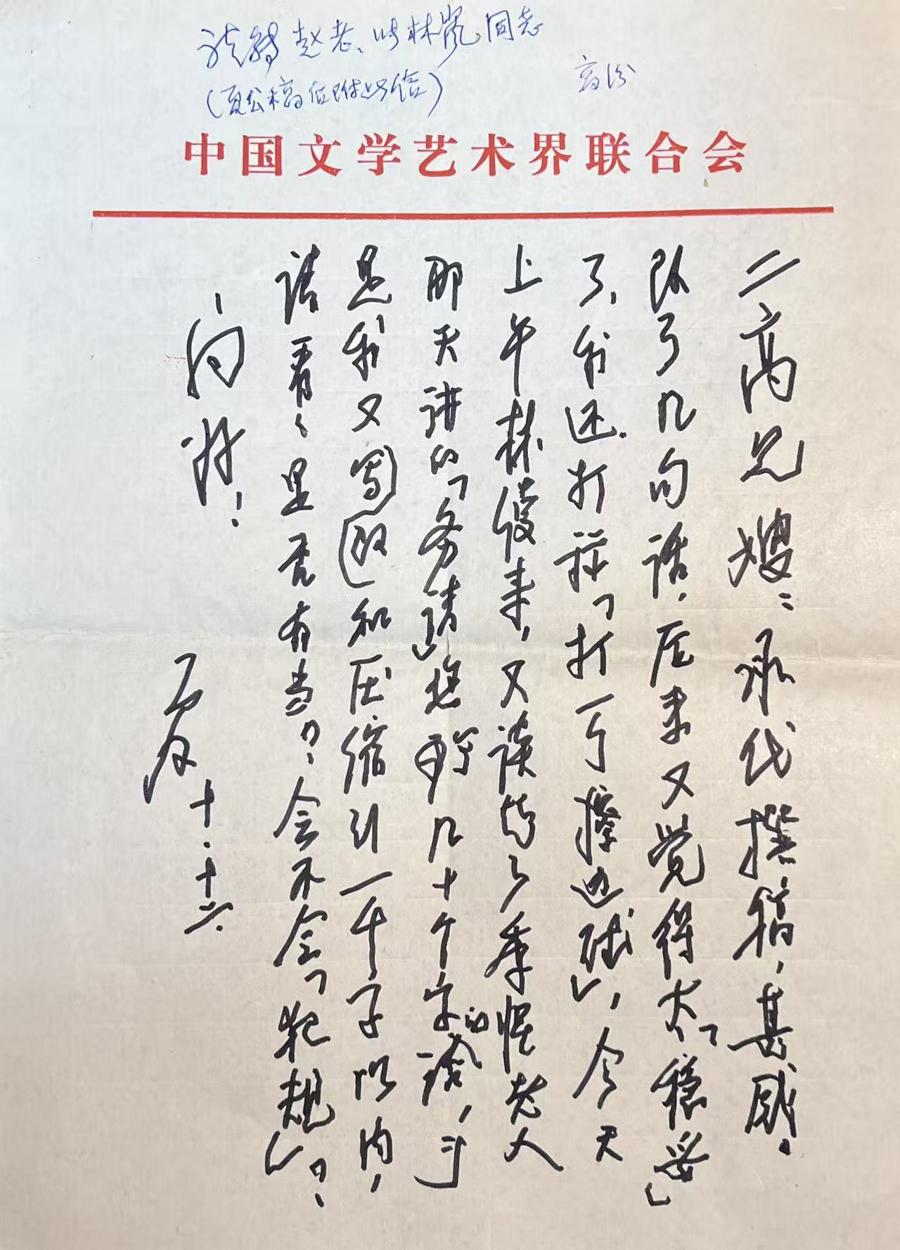 赵老、林岚同志
高汾
中国文学艺术界联合会
二高兄嫂：承代撰稿，甚感。
改了几句话，后来又觉得太「稳妥」
了，我还打算「打一个擦边球」，今天
上午林缦来，又谈到了季惺老人
那天讲的「务请」您那几十个字的话，于
是我又写和压缩到一千字以内，
请看看是否有当？会不会「犯规」？
问好！
夏 十.十六